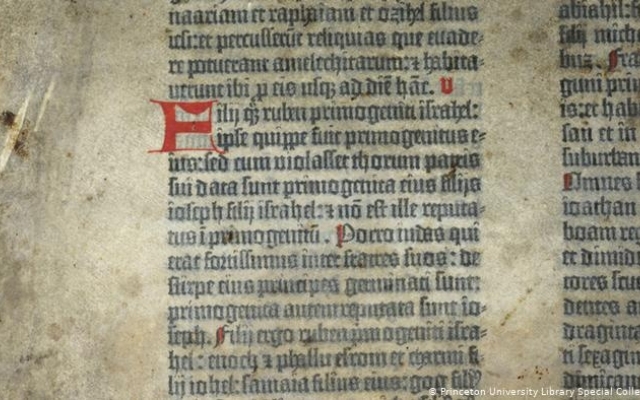 naariam et raphaiam et ozihel filios
iesi:et percusserūt reliquias que euade-
re potuerant amalechitarum:⁊ habita-
uerunt ibi ꝓ eis usqꝫ ad diē hāc. V
Filij qꝫ ruben primogeniti israhel:
ipse quippe fuit primogenitus e-
ius:sed cum violasset thorum patris
sui data sunt primogenita eius filijs
ioseph filij israhel:⁊ nō est ille reputa-
tus ī primogenitū. Porro iudas qui
erat fortissimus inter fratres suos: de
stirpe eius principes germinati sunt:
primogenita autem reputata sunt io-
seph. Filij ergo ruben primogeniti isra-
hel: enoch ⁊ phallu esrom et charmi fi-
lij iohel: samaia filius eius: gog
abiahil: f
filij miche
buz. Fra
guni prin
is:et hab
san et in
suburban
Omnes h
ioathan
boam reg
et dimidi
tores scu
dentes a
draginta
ti sexagin
© Princeton University Library Special Colle